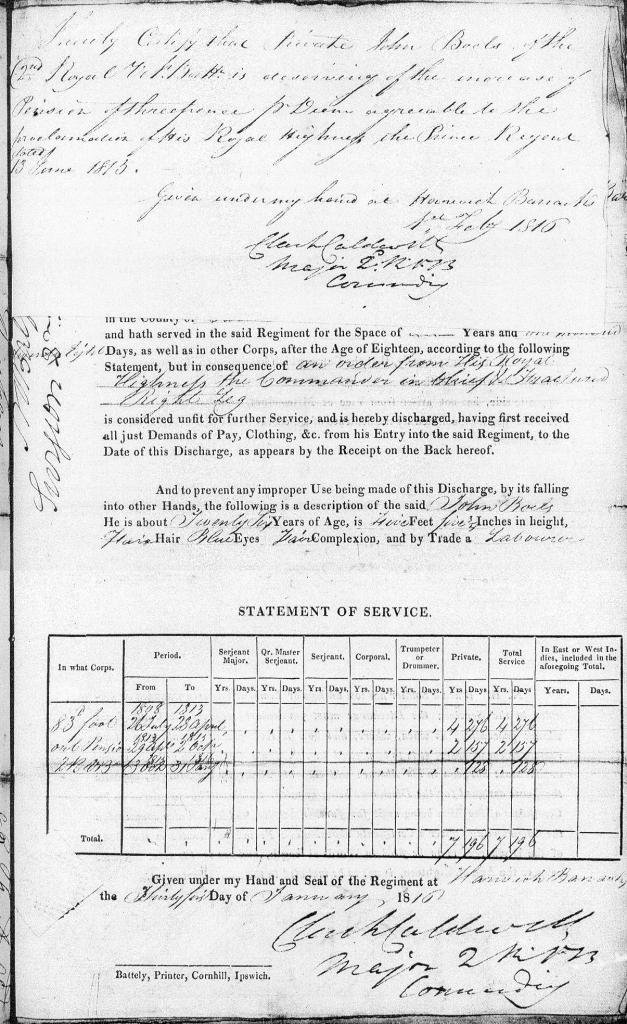 I hereby Certify that Private John Boels of the
2nd Royal Vet. Battn. is deserving of the increase of
Pension of threepence pr Diem agreeable to the
proclamation of His Royal Highness the Prince Regent
dated
13 June 1813.
Given under my hand at Harwich Barracks
1st Feby 1816
Major 2. R V B
Commdg
in the County of
and hath served in the said Regiment for the Space of Years and one hundred
Days, as well as in other Corps, after the Age of Eighteen, according to the following
Statement, but in consequence of an order from His Royal
Highness the Commander in chief & Fractured
Right Leg
is considered unfit for further Service, and is hereby discharged, having first received
all just Demands of Pay, Clothing, &c. from his Entry into the said Regiment, to the
Date of this Discharge, as appears by the Receipt on the Back hereof.
And to prevent any improper Use being made of this Discharge, by its falling
into other Hands, the following is a description of the said John Boels
He is about Twenty Years of Age, is Five Feet five Inches in height,
Fair Hair Blue Eyes Fair Complexion, and by Trade a Labourer
STATEMENT OF SERVICE.
In what Corps. Period. Serjeant Major. Qr. Master Serjeant. Serjeant. Corporal. Trumpeter or Drummer. Private. Total Service In East or West Indies, included in the aforegoing Total.
From To Yrs. Days. Yrs. Days. Yrs. Days. Yrs. Days. Yrs. Days. Yrs. Days. Yrs. Days. Years. Days.
1808 1813
83d foot 26 July 28 April 4 276 4 276
1813 1815
out Pension 29 Apl 2 Octr 2 157 2 157
128 128
Total. 7 196 7 196
Given under my Hand and Seal of the Regiment at Harwich Barracks
the Thirty first Day of January 1816
Major 2 R V B
Commdg
Battely, Printer, Cornhill, Ipswich.